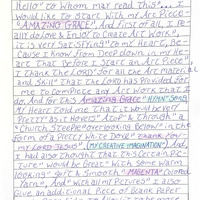 Hello" to Whom may read This"... I
Would like to Start With my Art Piece
"AMAZING GRACE". And First of All, I Re-
ally do Love & Enjoy to Create Art Work",
it is Very Satisfying" to my Heart, Be-
cause I Know from Deep down in my He-
art That Before I Start an Art Piece" I
Thank The Lord" for all the Art Material
and Skill" That The Lord has Provided for
me to Complete any Art Work that I
do. And for This Amazing Grace "HYMN" Song
At Heart The
Pretty" as it Hovers" Atop" & Through" a
"Church Steeple" overlooking Below" in The
Form of a Picture White Dove" Thank You
my LORD JESUS". (MY CREATIVE IMAGINATION") And,
I had also Thought that This Certain Pic-
ture" would be Great" With Some Warm
Looking" Soft & Smooth" "MAGENTA" Colored
Yarn", And" With all my Pictures" I also
Give an additional Piece of Blank Paper